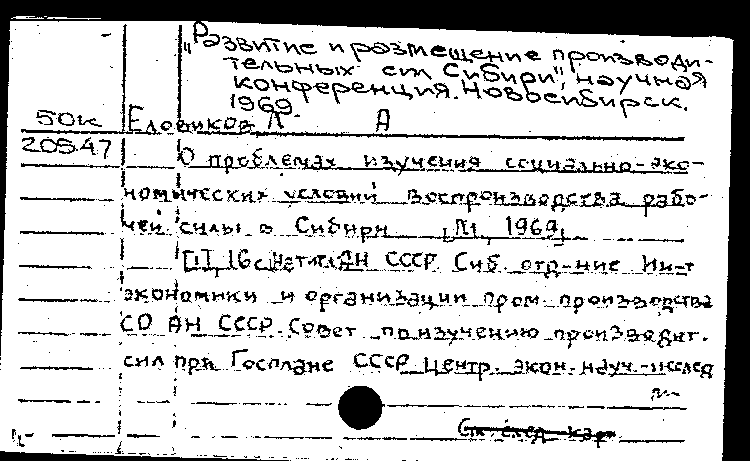 „Развитие и размещение производи-
тельных сил Сибири", научная
конференция. Новосибирск.
1969
50к Еловиков, Л А
20547
О проблемах изучения социально-эко-
номических условий воспроизводства рабо-
чей силы в Сибири [М., 1969]
[1], 16 с. АН СССР Сиб. отд-ние Ин-т
экономики и организации пром. производства
СО АН СССР. Совет по изучению производит.
сил при Госплане СССР Центр. экон. науч.-исслед
См след карт.